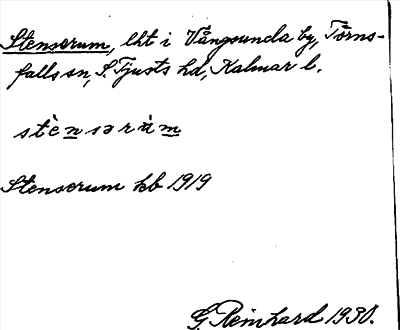 Stenserum, lht i Vångsunda by, Törns-
falls sn, S. Tjusts hd, Kalmar l.
stènsəràm
Stenserum kb 1919
G. Reinhard 1930.